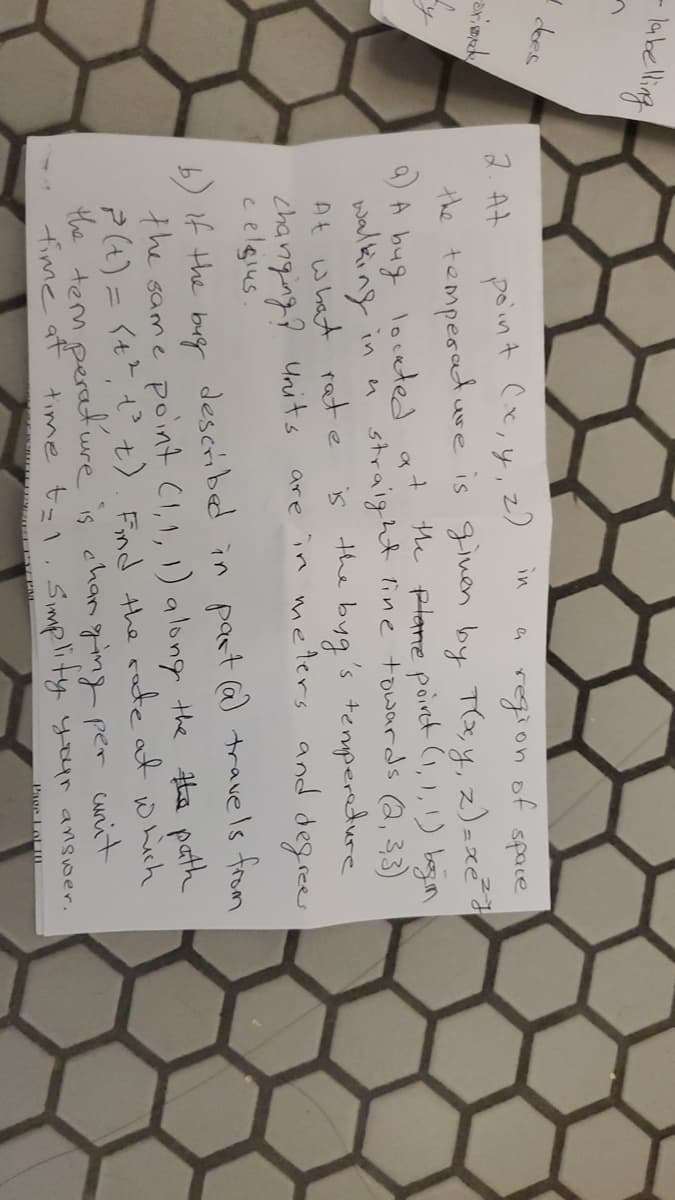 - labelling
n
does
y
2. At point (x, y, z) in a region of space
the temperature is given by T(x, y, z) = xe^{z-y}
a) A bug located at the plane point (1, 1, 1) begin
walking in a straight line towards (2, 3, 3)
At what rate is the bug's temperature
changing? Units are in meters and degrees
celsius.
b) If the bug described in part (a) travels from
the same point (1, 1, 1) along the the path
r(t) = <t², t³, t>. Find the rate at which
the temperature is changing per unit
time at time t = 1. Simplify your answer.